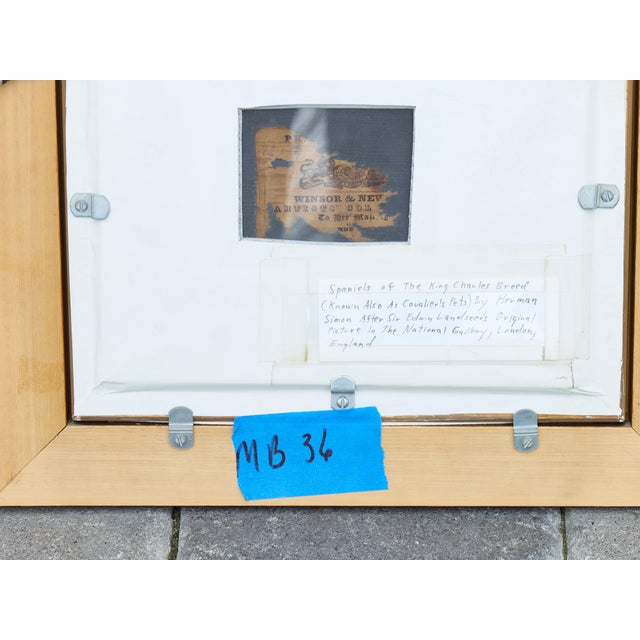 WINSOR & NEW
ARTISTS' COL
To Her Maj
Spaniels of The King Charles Breed
(Known Also As Cavalier's Pets) By Herman
Simon After Sir Edwin Landseer's Original
Picture in The National Gallery, London,
England
MB 36